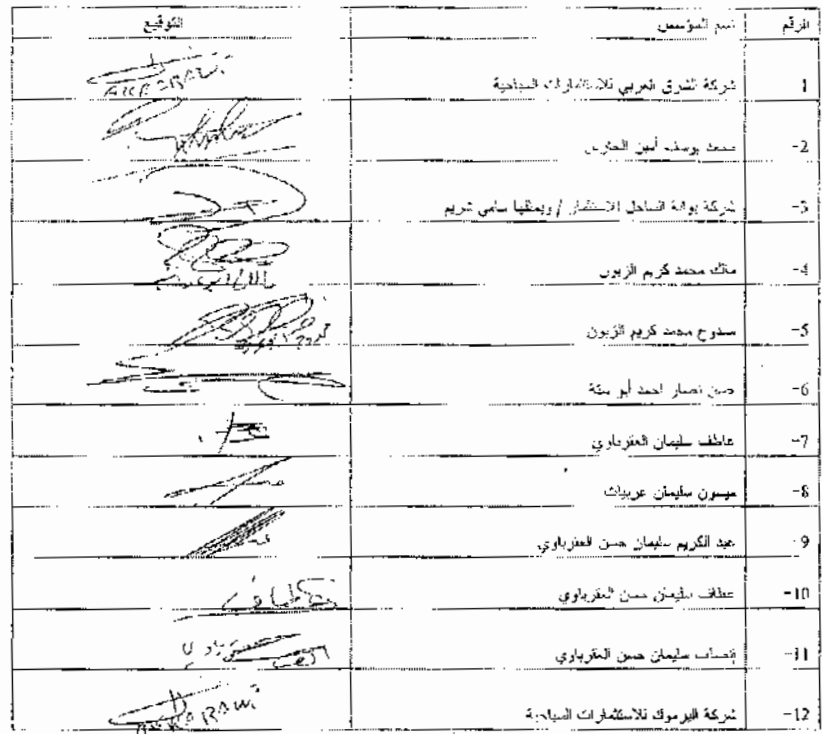 الرقم اسم المؤسس التوقيع
1 شركة الشرق العربي للاستثمارات السياحية AKRABAWI
2- محمد يوسف أمين
3- شركة بوابة الساحل للاستثمار / ويمثلها سامي شريم
4- مالك محمد كريم الزبون
5- ممدوح محمد كريم الزبون
6- حسن نصار احمد أبو
7- عاطف سليمان العقرباوي
8- ميسون سليمان عربيات
9- عبد الكريم سليمان حسن العقرباوي
10- عطاف سليمان حسن العقرباوي
11- إنصاف سليمان حسن العقرباوي
12- شركة اليرموك للاستثمارات السياحية AKRABAWI